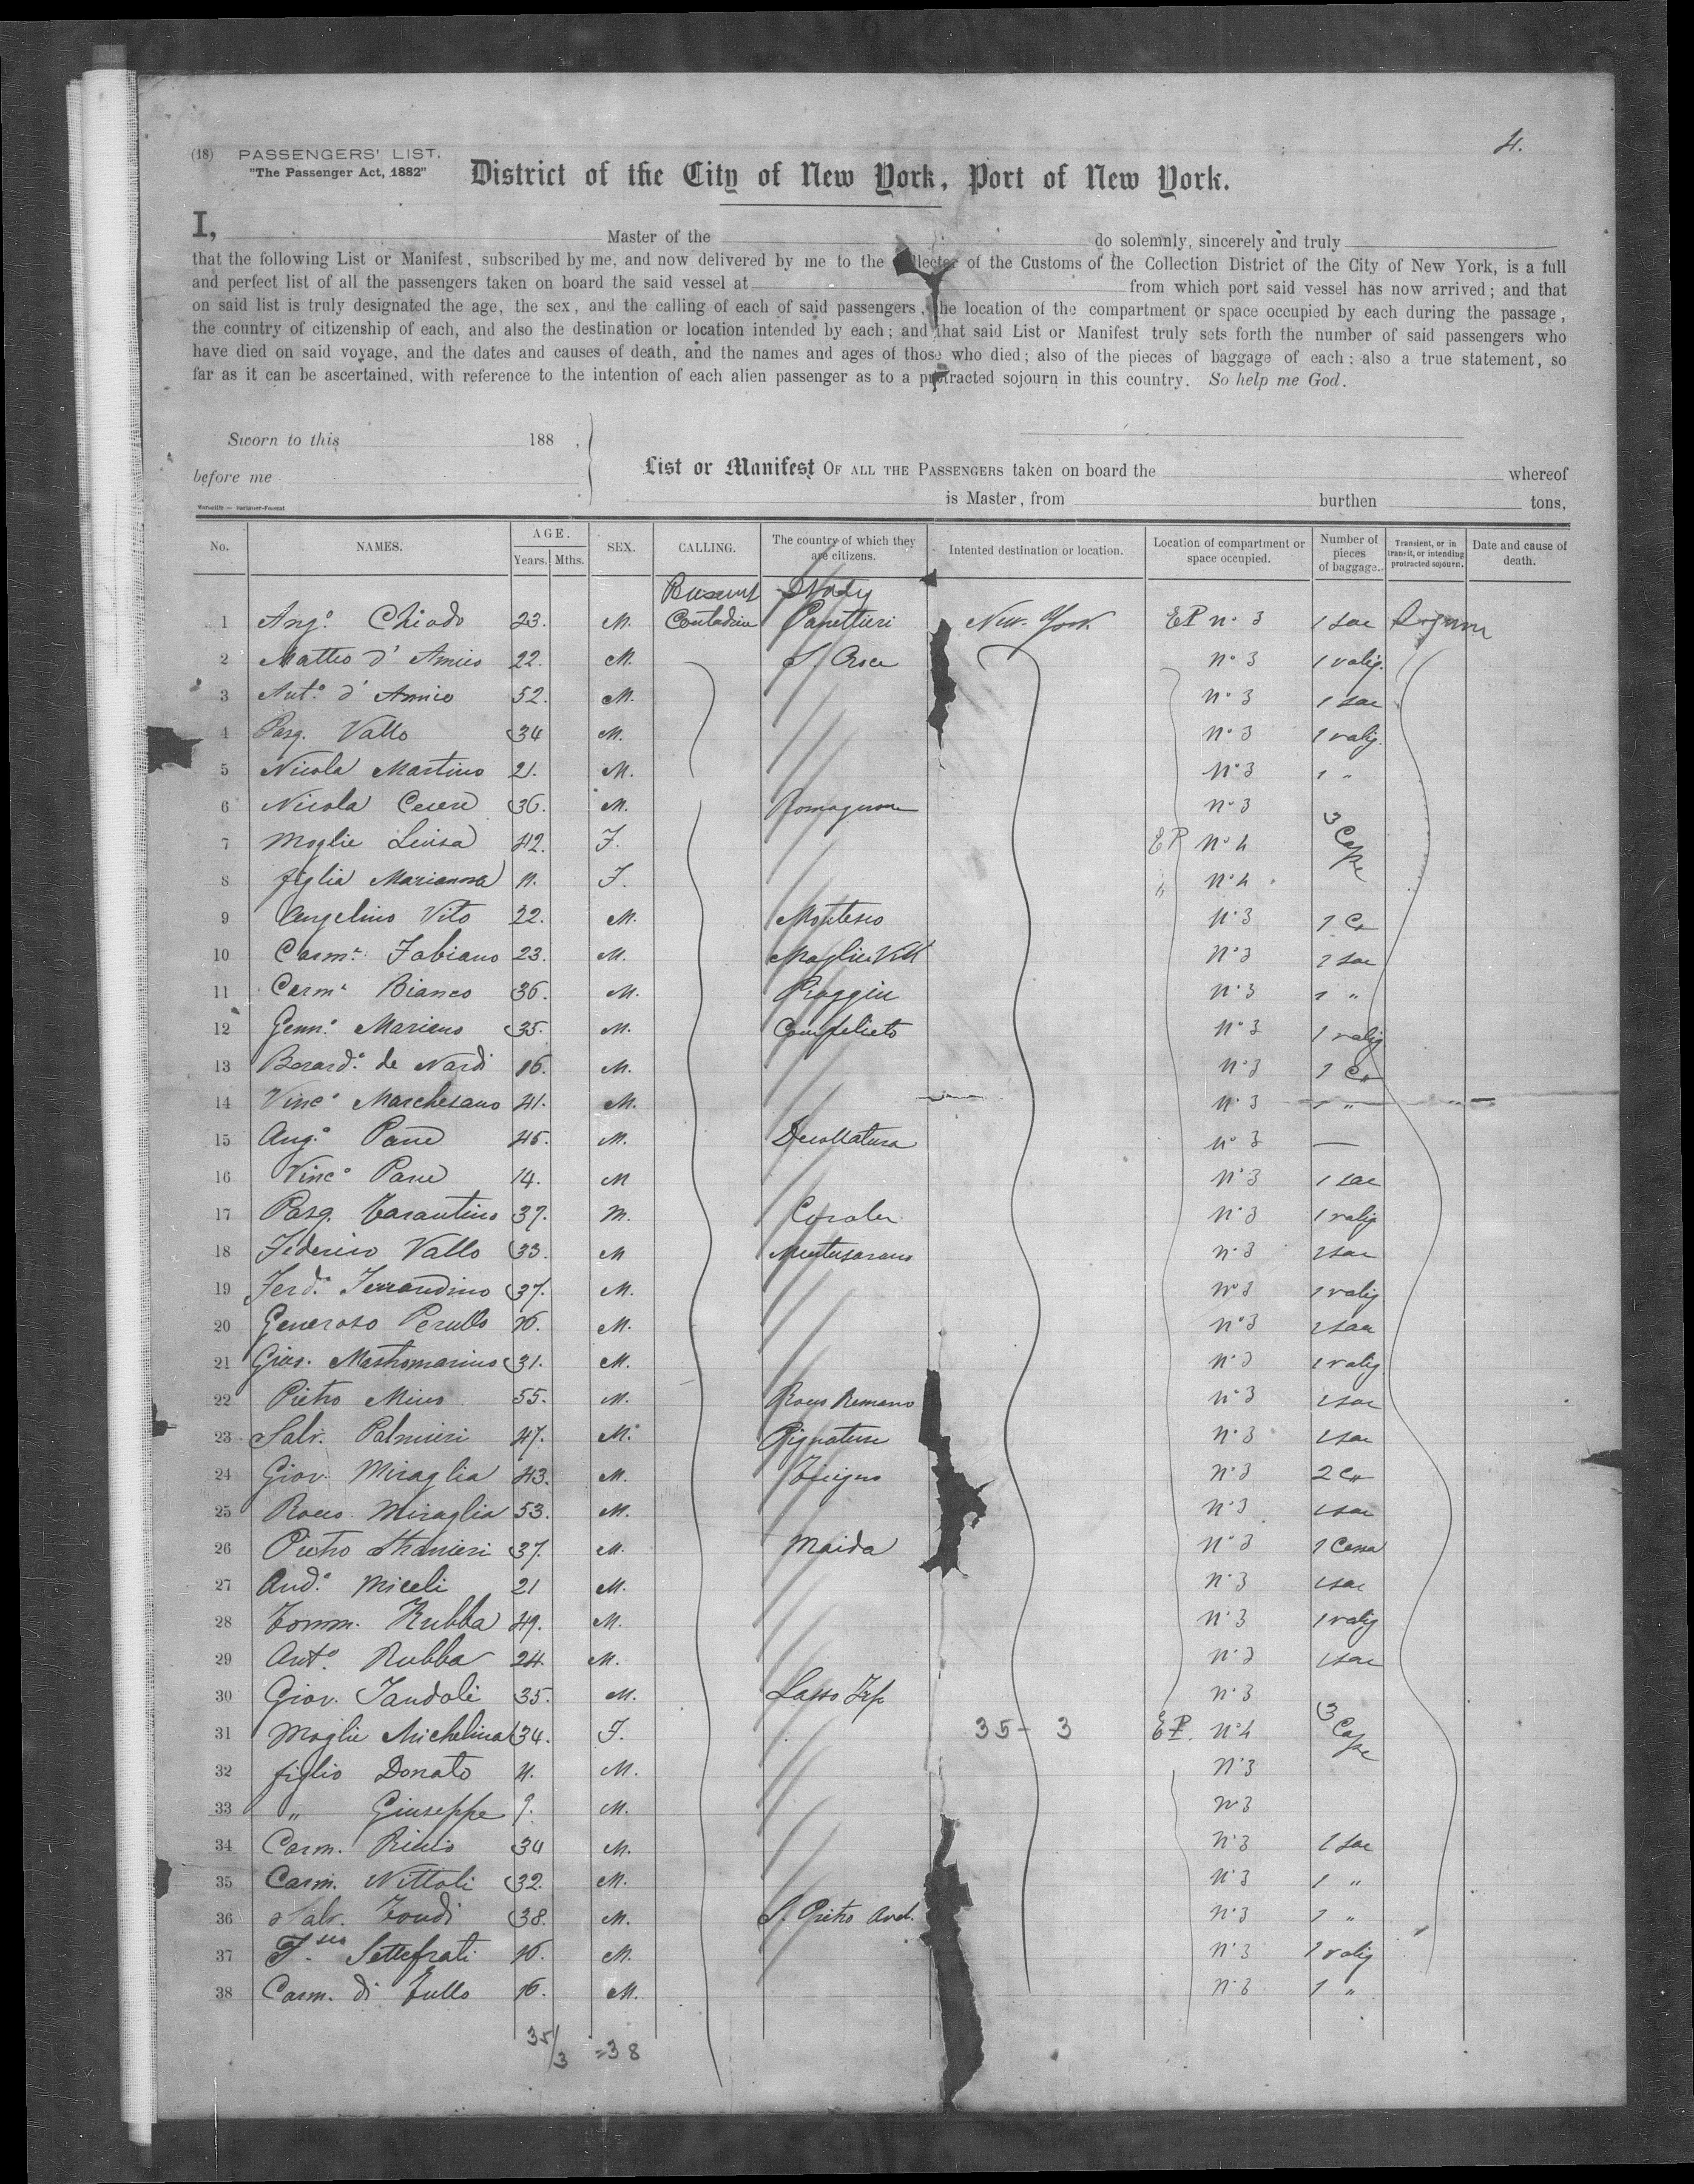 4.
(18) PASSENGERS' LIST.
"The Passenger Act, 1882"
District of the City of New York, Port of New York.
I, Master of the do solemnly, sincerely and truly
that the following List or Manifest, subscribed by me, and now delivered by me to the Collector of the Customs of the Collection District of the City of New York, is a full
and perfect list of all the passengers taken on board the said vessel at from which port said vessel has now arrived; and that
on said list is truly designated the age, the sex, and the calling of each of said passengers, the location of the compartment or space occupied by each during the passage,
the country of citizenship of each, and also the destination or location intended by each; and that said List or Manifest truly sets forth the number of said passengers who
have died on said voyage, and the dates and causes of death, and the names and ages of those who died; also of the pieces of baggage of each: also a true statement, so
far as it can be ascertained, with reference to the intention of each alien passenger as to a protracted sojourn in this country. So help me God.
Sworn to this 188 ,
before me
List or Manifest OF ALL THE PASSENGERS taken on board the whereof
is Master, from burthen tons,
No. NAMES. AGE. Years. Mths. SEX. CALLING. The country of which they are citizens. Intented destination or location. Location of compartment or space occupied. Number of pieces of baggage. Transient, or in transit, or intending protracted sojourn. Date and cause of death.
Italy
1 Ang.º Chiodo 23. M. Panettieri New-York EP nº 3 1 sac
2 Matteo d' Amico 22. M. S. Croce nº 3 1 valig.
3 Ant.º d' Amico 52. M. nº 3 1 sac
4 Pasq. Vallo 34 M. nº 3 1 valig.
5 Nicola Martino 21. M. nº 3 1 "
6 Nicola 36. M. nº 3
7 Moglie Luisa 42. F. EP nº 4 3 Casse
8 figlia Marianna 11. F. " nº 4
9 Angelino Vito 22. M. nº 3 1 Ca
10 Carm.e Fabiano 23. M. nº 3 1 sac
11 Carm.e Bianco 36. M. nº 3 1 "
12 Genn.º Marieno 35. M. nº 3 1 valig
13 Berard.º de Nardi 16. M. nº 3 1 Ca
14 Vinc.º Marchesano 41. M. nº 3 1 "
15 Ang.º Pane 45. M. Decollatura nº 3 —
16 Vinc.º Pane 14. M nº 3 1 sac
17 Pasq. Tarantino 37. M. nº 3 1 valig
18 Federico Vallo 33. M nº 3 1 sac
19 Ferd.º Ferrandino 37. M. nº 3 1 valig
20 Generoso Perullo 16. M. nº 3 1 sac
21 Gius. Mastromarino 31. M. nº 3 1 valig
22 Pietro Mino 55. M. nº 3 1 sac
23 Salv. Palmieri 47. M. nº 3 1 sac
24 Giov. Miraglia 43. M. nº 3 2 Ca
25 Rocco Miraglia 53. M. nº 3 1 sac
26 Pietro Stranieri 37. M. Maida nº 3 1 Cassa
27 And.º Miceli 21 M. nº 3 1 sac
28 Tomm. Rubba 49. M. nº 3 1 valig
29 Ant.º Rubba 24. M. nº 3 1 sac
30 Giov. Iandoli 35. M. nº 3
31 Moglie Michelina 34. F. 35 - 3 EP. nº 4 3 Casse
32 figlio Donato 11. M. nº 3
33 " Giuseppe 9. M. nº 3
34 Carm. 34 M. nº 3 1 sac
35 Carm. Nittoli 32. M. nº 3 1 "
36 Salv. Tondi 38. M. S. Pietro Avel. nº 3 1 "
37 F.sco Settefrati 16. M. nº 3 1 valig
38 Carm. di Tullo 16. M. nº 3 1 "
35/3 = 38